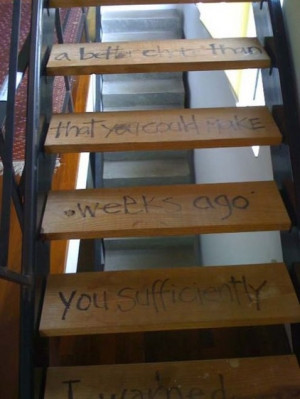 I warned
you sufficiently
weeks ago
that you could make
a better than